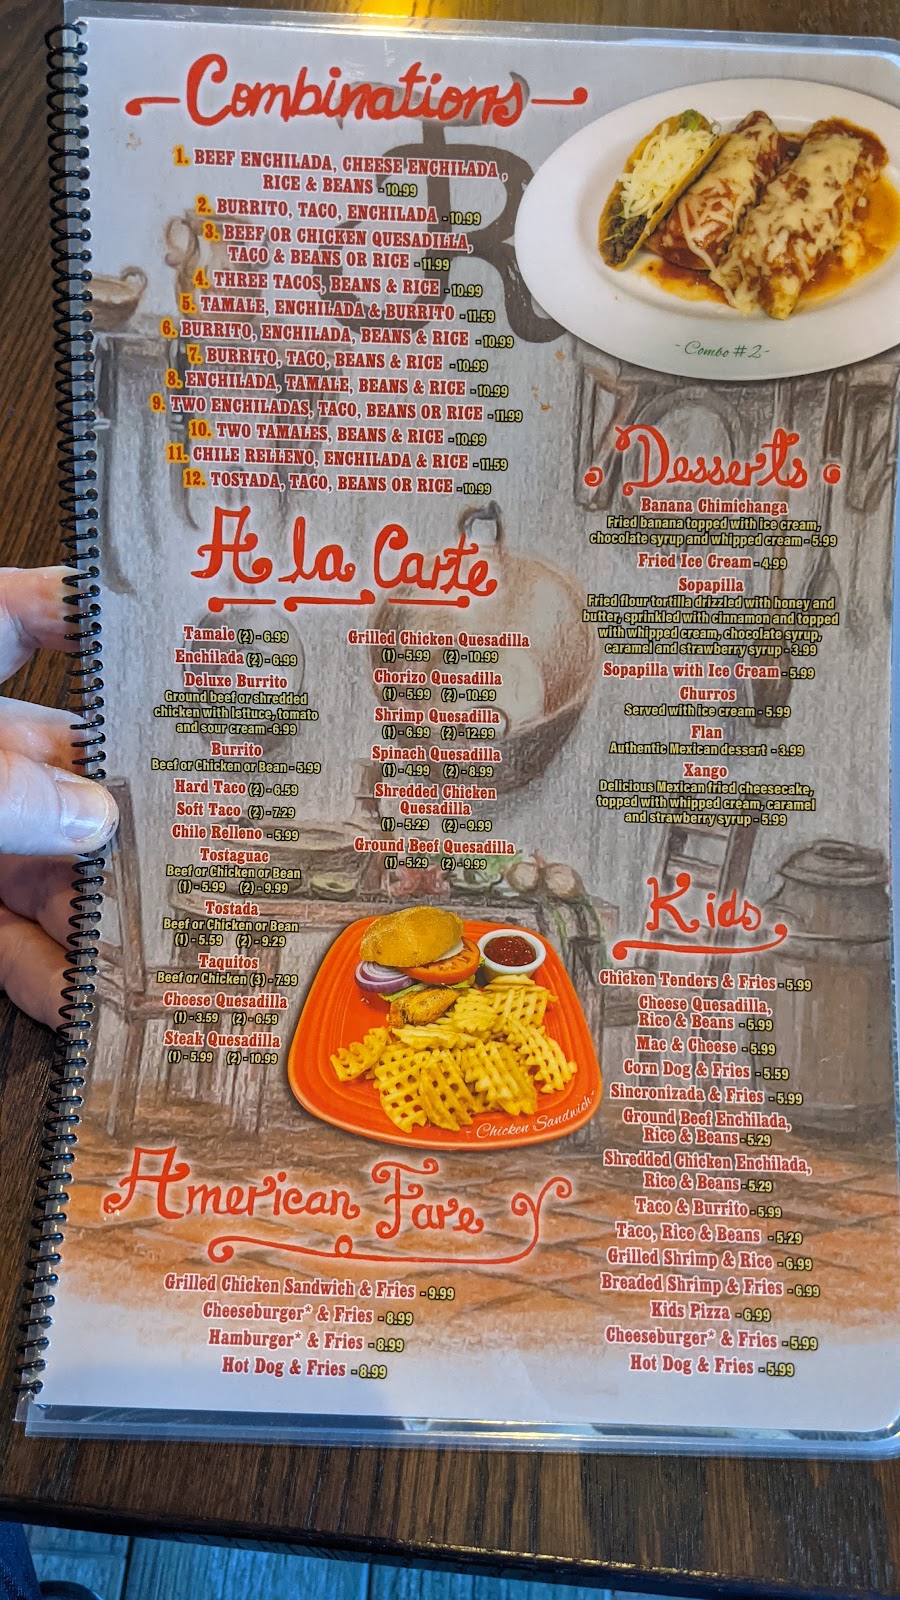 Combinations
1. BEEF ENCHILADA, CHEESE ENCHILADA,
RICE & BEANS - 10.99
2. BURRITO, TACO, ENCHILADA - 10.99
3. BEEF OR CHICKEN QUESADILLA,
TACO & BEANS OR RICE - 11.99
4. THREE TACOS, BEANS & RICE - 10.99
5. TAMALE, ENCHILADA & BURRITO - 11.59
6. BURRITO, ENCHILADA, BEANS & RICE - 10.99
7. BURRITO, TACO, BEANS & RICE - 10.99
8. ENCHILADA, TAMALE, BEANS & RICE - 10.99
9. TWO ENCHILADAS, TACO, BEANS OR RICE - 11.99
10. TWO TAMALES, BEANS & RICE - 10.99
11. CHILE RELLENO, ENCHILADA & RICE - 11.59
12. TOSTADA, TACO, BEANS OR RICE - 10.99
- Combo #2 -
A la Carte
Tamale (2) - 6.99
Enchilada (2) - 6.99
Deluxe Burrito
Ground beef or shredded
chicken with lettuce, tomato
and sour cream - 6.99
Burrito
Beef or Chicken or Bean - 5.99
Hard Taco (2) - 6.59
Soft Taco (2) - 7.29
Chile Relleno - 5.99
Tostaguac
Beef or Chicken or Bean
(1) - 5.99 (2) - 9.99
Tostada
Beef or Chicken or Bean
(1) - 5.59 (2) - 9.29
Taquitos
Beef or Chicken (3) - 7.99
Cheese Quesadilla
(1) - 3.59 (2) - 6.59
Steak Quesadilla
(1) - 5.99 (2) - 10.99
Grilled Chicken Quesadilla
(1) - 5.99 (2) - 10.99
Chorizo Quesadilla
(1) - 5.99 (2) - 10.99
Shrimp Quesadilla
(1) - 6.99 (2) - 12.99
Spinach Quesadilla
(1) - 4.99 (2) - 8.99
Shredded Chicken
Quesadilla
(1) - 5.29 (2) - 9.99
Ground Beef Quesadilla
(1) - 5.29 (2) - 9.99
- Chicken Sandwich -
American Fare
Grilled Chicken Sandwich & Fries - 9.99
Cheeseburger* & Fries - 8.99
Hamburger* & Fries - 8.99
Hot Dog & Fries - 8.99
Desserts
Banana Chimichanga
Fried banana topped with ice cream,
chocolate syrup and whipped cream - 5.99
Fried Ice Cream - 4.99
Sopapilla
Fried flour tortilla drizzled with honey and
butter, sprinkled with cinnamon and topped
with whipped cream, chocolate syrup,
caramel and strawberry syrup - 3.99
Sopapilla with Ice Cream - 5.99
Churros
Served with ice cream - 5.99
Flan
Authentic Mexican dessert - 3.99
Xango
Delicious Mexican fried cheesecake,
topped with whipped cream, caramel
and strawberry syrup - 5.99
Kids
Chicken Tenders & Fries - 5.99
Cheese Quesadilla,
Rice & Beans - 5.99
Mac & Cheese - 5.99
Corn Dog & Fries - 5.59
Sincronizada & Fries - 5.99
Ground Beef Enchilada,
Rice & Beans - 5.29
Shredded Chicken Enchilada,
Rice & Beans - 5.29
Taco & Burrito - 5.99
Taco, Rice & Beans - 5.29
Grilled Shrimp & Rice - 6.99
Breaded Shrimp & Fries - 6.99
Kids Pizza - 6.99
Cheeseburger* & Fries - 5.99
Hot Dog & Fries - 5.99